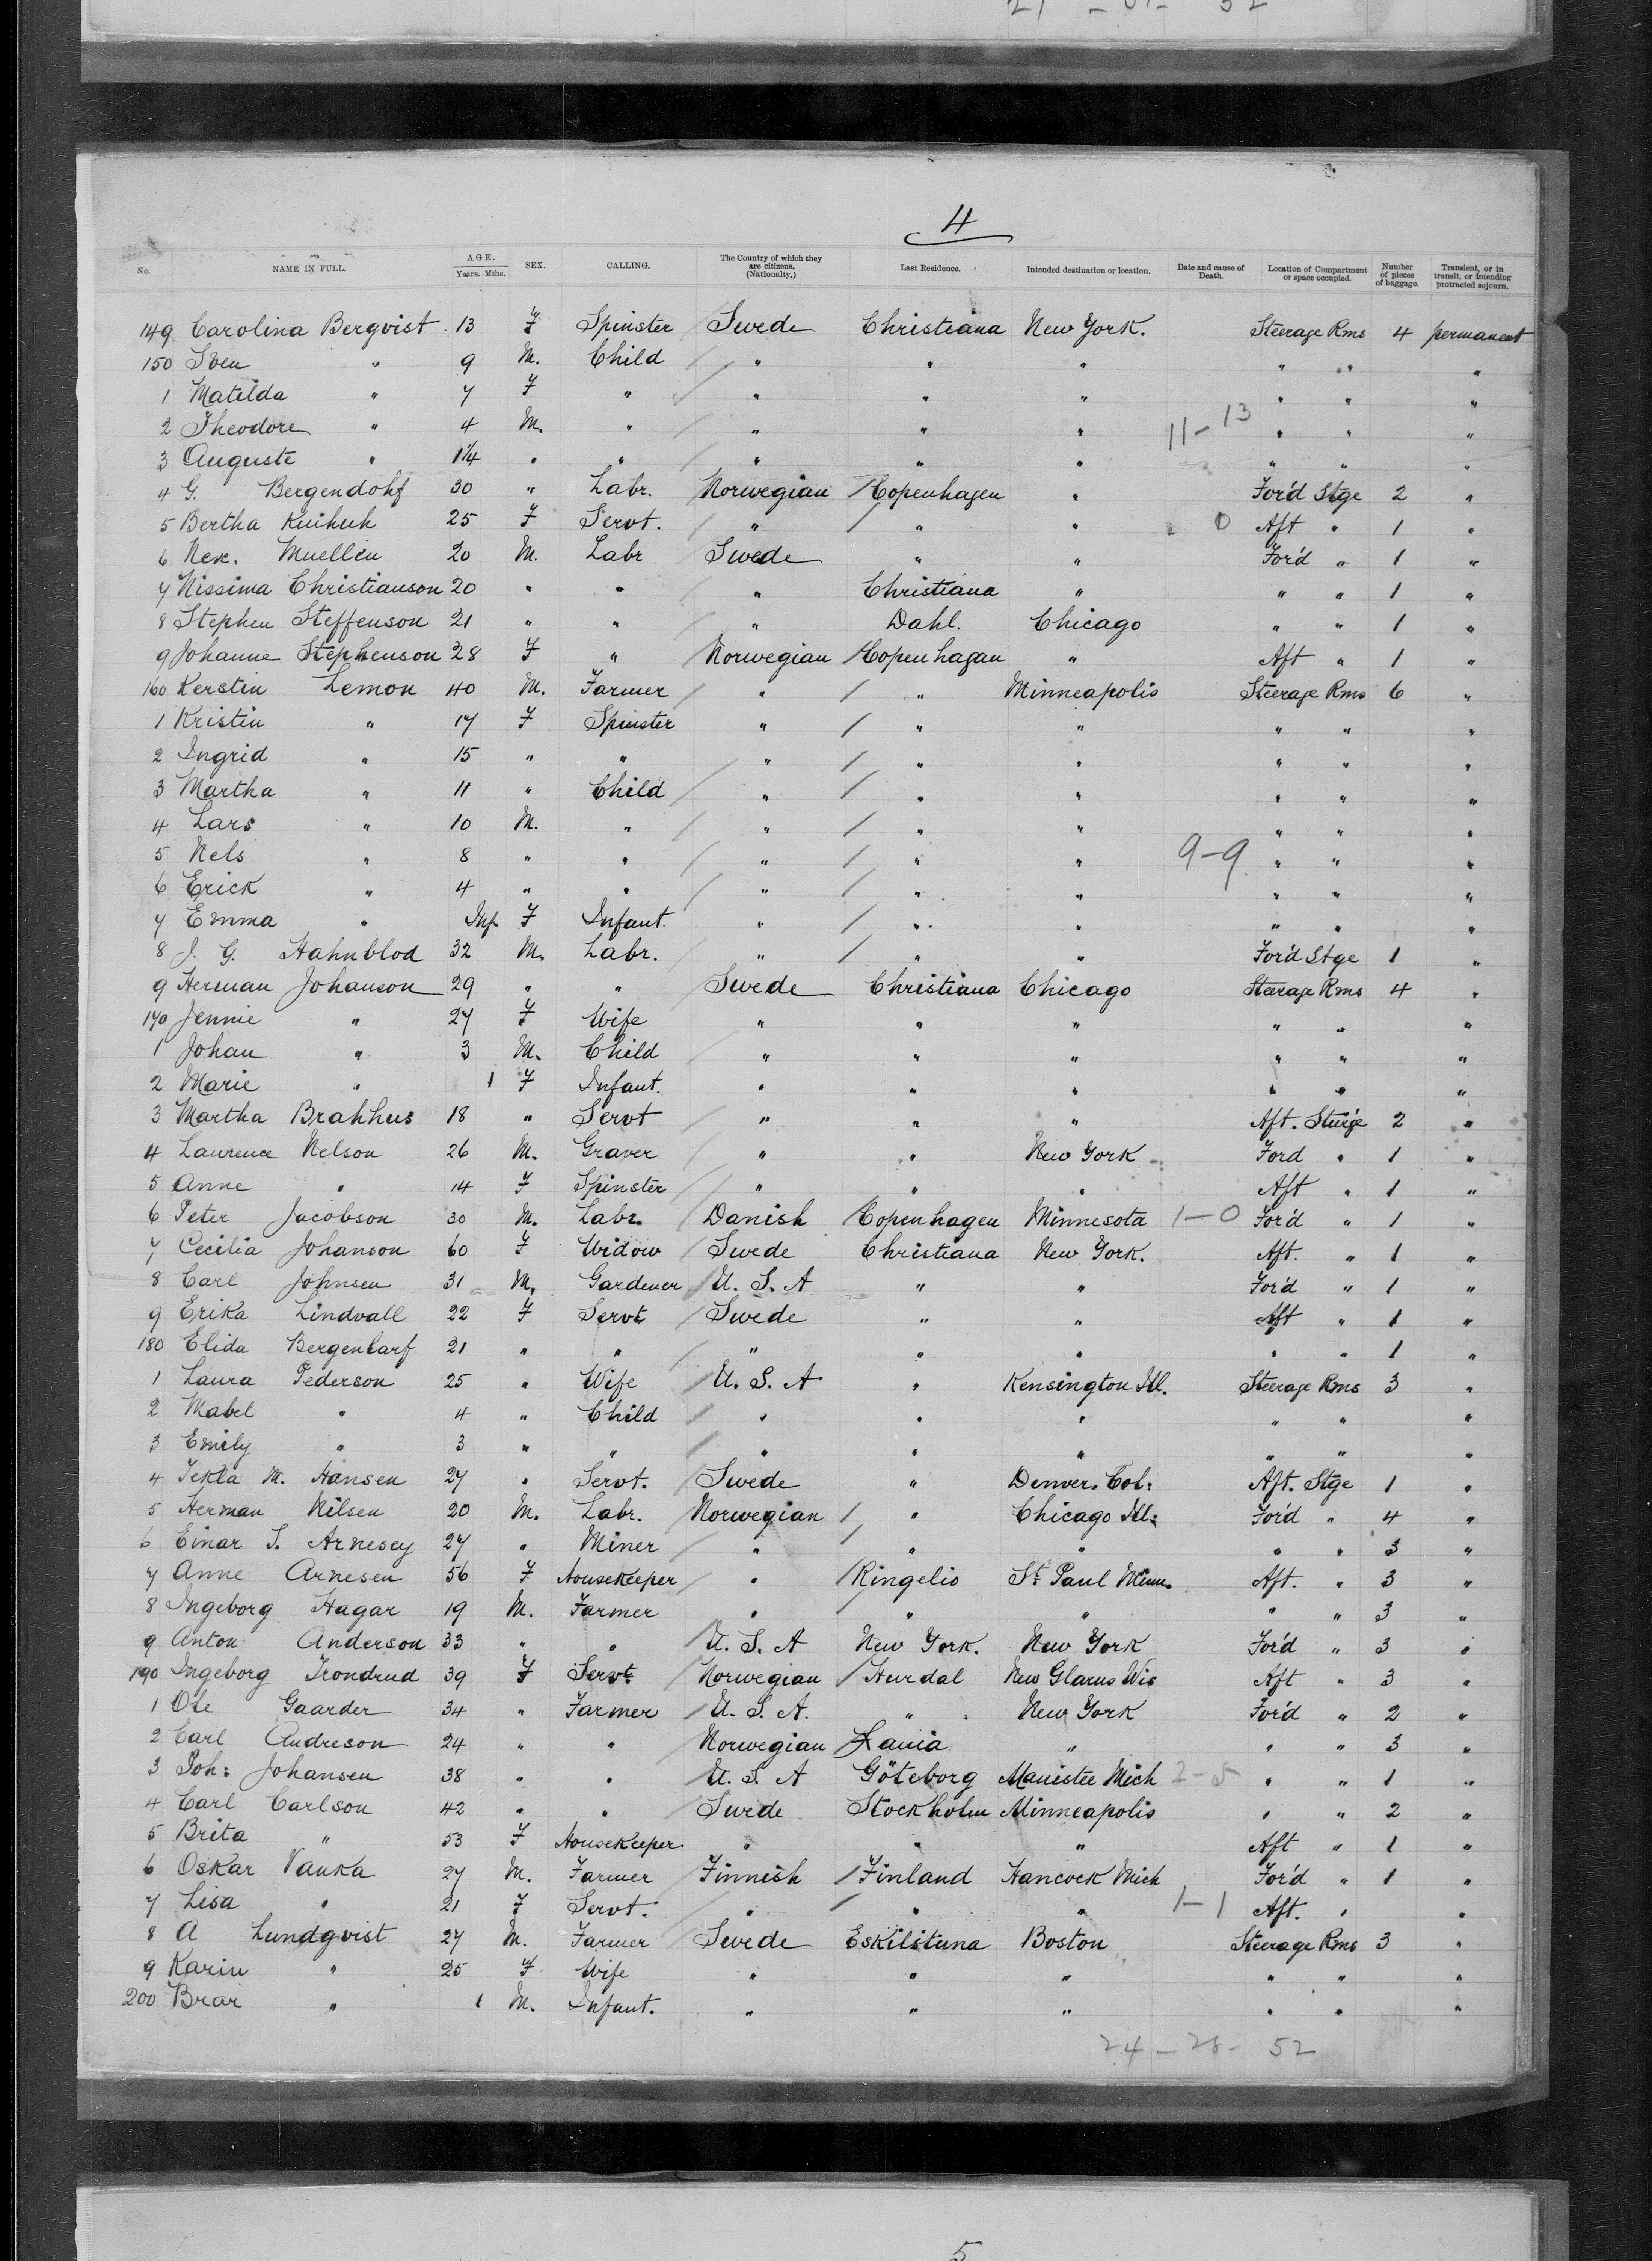 21 - 31 - 52
4
No. NAME IN FULL. AGE. Years. Mths. SEX. CALLING. The Country of which they are citizens. (Nationality.) Last Residence. Intended destination or location. Date and cause of Death. Location of Compartment or space occupied. Number of pieces of baggage. Transient, or in transit, or intending protracted sojourn.
149 Carolina Bergvist 13 F Spinster Swede Christiana New York. Steerage Rms 4 permanent
150 Sven " 9 M. Child " " " " " "
1 Matilda " 7 F " " " " " " "
2 Theodore " 4 M. " " " " 11-13 " " "
3 Auguste " 1 1/4 " " " " " " " "
4 G. Bergendohf 30 " Labr. Norwegian Copenhagen " For'd Stge 2 "
5 Bertha 25 F Servt. " " " 0 Aft " 1 "
6 Nex. Muellin 20 M. Labr Swede " " For'd " 1 "
7 Nissima Christianson 20 " " " Christiana " " " 1 "
8 Stephen Steffenson 21 " " " Dahl. Chicago " " 1 "
9 Johanne Stephenson 28 F " Norwegian Copenhagan " Aft " 1 "
160 Kerstin Lemon 40 M. Farmer " " Minneapolis Steerage Rms 6 "
1 Kristin " 17 F Spinster " " " " " "
2 Ingrid " 15 " " " " " " " "
3 Martha " 11 " Child " " " " " "
4 Lars " 10 M. " " " " " " "
5 Nels " 8 " " " " " 9-9 " " "
6 Erick " 4 " " " " " " " "
7 Emma " Inf. F Infant. " " " " " "
8 J. G. Hahnblod 32 M. Labr. " " " For'd Stge 1 "
9 Herman Johanson 29 " " Swede Christiana Chicago Steerage Rms 4 "
170 Jennie " 27 F Wife " " " " " "
1 Johan " 3 M. Child " " " " " "
2 Marie " 1 F Infant. " " " " " "
3 Martha Brahhus 18 " Servt " " " Aft. Steir'ge 2 "
4 Laurence Nelson 26 M. Graver " " New York Ford " 1 "
5 Anne " 14 F Spinster " " " Aft " 1 "
6 Peter Jacobson 30 M. Labr. Danish Copenhagen Minnesota 1-0 For'd " 1 "
7 Cecilia Johanson 60 F Widow Swede Christiana New York. Aft. " 1 "
8 Carl Johnsen 31 M. Gardener U. S. A " " For'd " 1 "
9 Erika Lindvall 22 F Servt Swede " " Aft " 1 "
180 Elida Bergenbarf 21 " " " " " " " 1 "
1 Laura Pederson 25 " Wife U. S. A " Kensington Ill. Steerage Rms 3 "
2 Mabel " 4 " Child " " " " " "
3 Emily " 3 " " " " " " " "
4 Tekla M. Hansen 27 " Servt. Swede " Denver. Col: Aft. Stge 1 "
5 Herman Nilsen 20 M. Labr. Norwegian " Chicago Ill: For'd " 4 "
6 Einar S. Arnesey 27 " Miner " " " " " 3 "
7 Anne Arnesen 56 F Housekeeper " Ringelio St Paul Minn. Aft. " 3 "
8 Ingeborg Hagar 19 M. Farmer " " " " " 3 "
9 Anton Anderson 33 " " U. S. A New York. New York For'd " 3 "
190 Ingeborg Trondrud 39 F Servt Norwegian Hurdal New Glarus Wis Aft " 3 "
1 Ole Gaarder 34 " Farmer U. S. A. " New York For'd " 2 "
2 Carl Andreson 24 " " Norwegian " " " 3 "
3 Joh: Johansen 38 " " U. S. A Göteborg Manistee Mich 2-5 " " 1 "
4 Carl Carlson 42 " " Swede Stockholm Minneapolis " " 2 "
5 Brita " 53 F Housekeeper " " " Aft " 1 "
6 Oskar Vanka 27 M. Farmer Finnish Finland Hancock Mich For'd " 1 "
7 Lisa " 21 F Servt. " " " 1-1 Aft. " "
8 A Lundqvist 27 M. Farmer Swede Eskilstuna Boston Steerage Rms 3 "
9 Karin " 25 F Wife " " " " " "
200 Brar " 1 M. Infant. " " " " " "
24 - 28 - 52
5